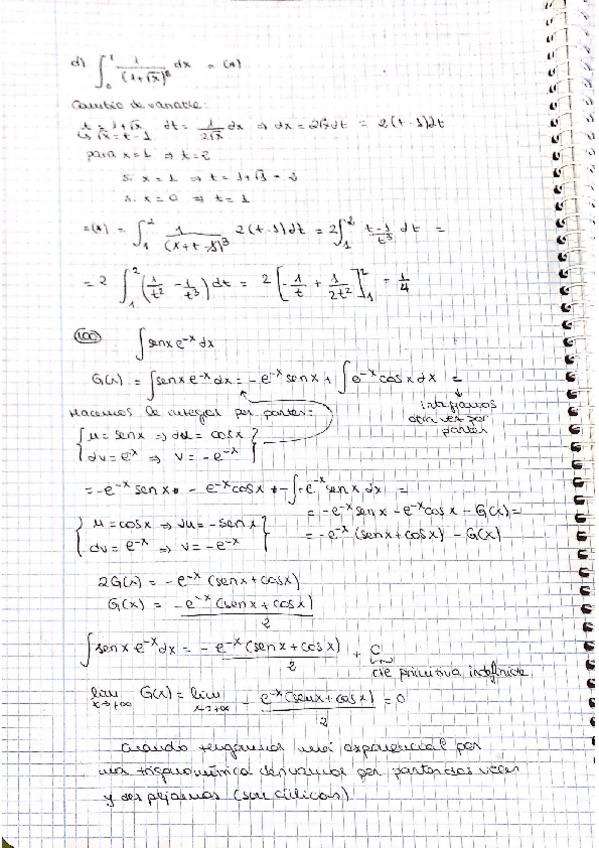 d) ∫₀¹ 1/(1+√x)³ dx = (*)
Cambio de variable:
t = 1+√x dt = 1/(2√x) dx ⇒ dx = 2√x dt = 2(t-1)dt
↳ √x = t-1
para x=1 ⇒ t=2
si x=1 ⇒ t = 1+√1 = 2
si x=0 ⇒ t=1
=(*) = ∫₁² 1/(1+t-1)³ 2(t-1)dt = 2∫₁² (t-1)/t³ dt =
= 2 ∫₁² (1/t² - 1/t³) dt = 2 [-1/t + 1/(2t²)]₁² = 1/4
100 ∫ senx e^-x dx
G(x) = ∫ senx e^-x dx = -e^-x senx + ∫ e^-x cosx dx =
Hacemos la integral por partes: integramos
otra vez por
partes
{ u = senx ⇒ du = cosx }
{ dv = e^-x ⇒ v = -e^-x }
= -e^-x senx - e^-x cosx - ∫ e^-x senx dx =
= -e^-x senx - e^-x cosx - G(x) =
{ u = cosx ⇒ du = -senx }
{ dv = e^-x ⇒ v = -e^-x }
= -e^-x (senx + cosx) - G(x)
2G(x) = -e^-x (senx + cosx)
G(x) = -e^-x (senx + cosx)/2
∫ senx e^-x dx = -e^-x (senx + cosx)/2 + C
cte primitiva indefinida
lim x→+∞ G(x) = lim x→+∞ -e^-x (senx + cosx)/2 = 0
Cuando tengamos una exponencial por
una trigonométrica derivamos por partes dos veces
y despejamos (son cíclicas)